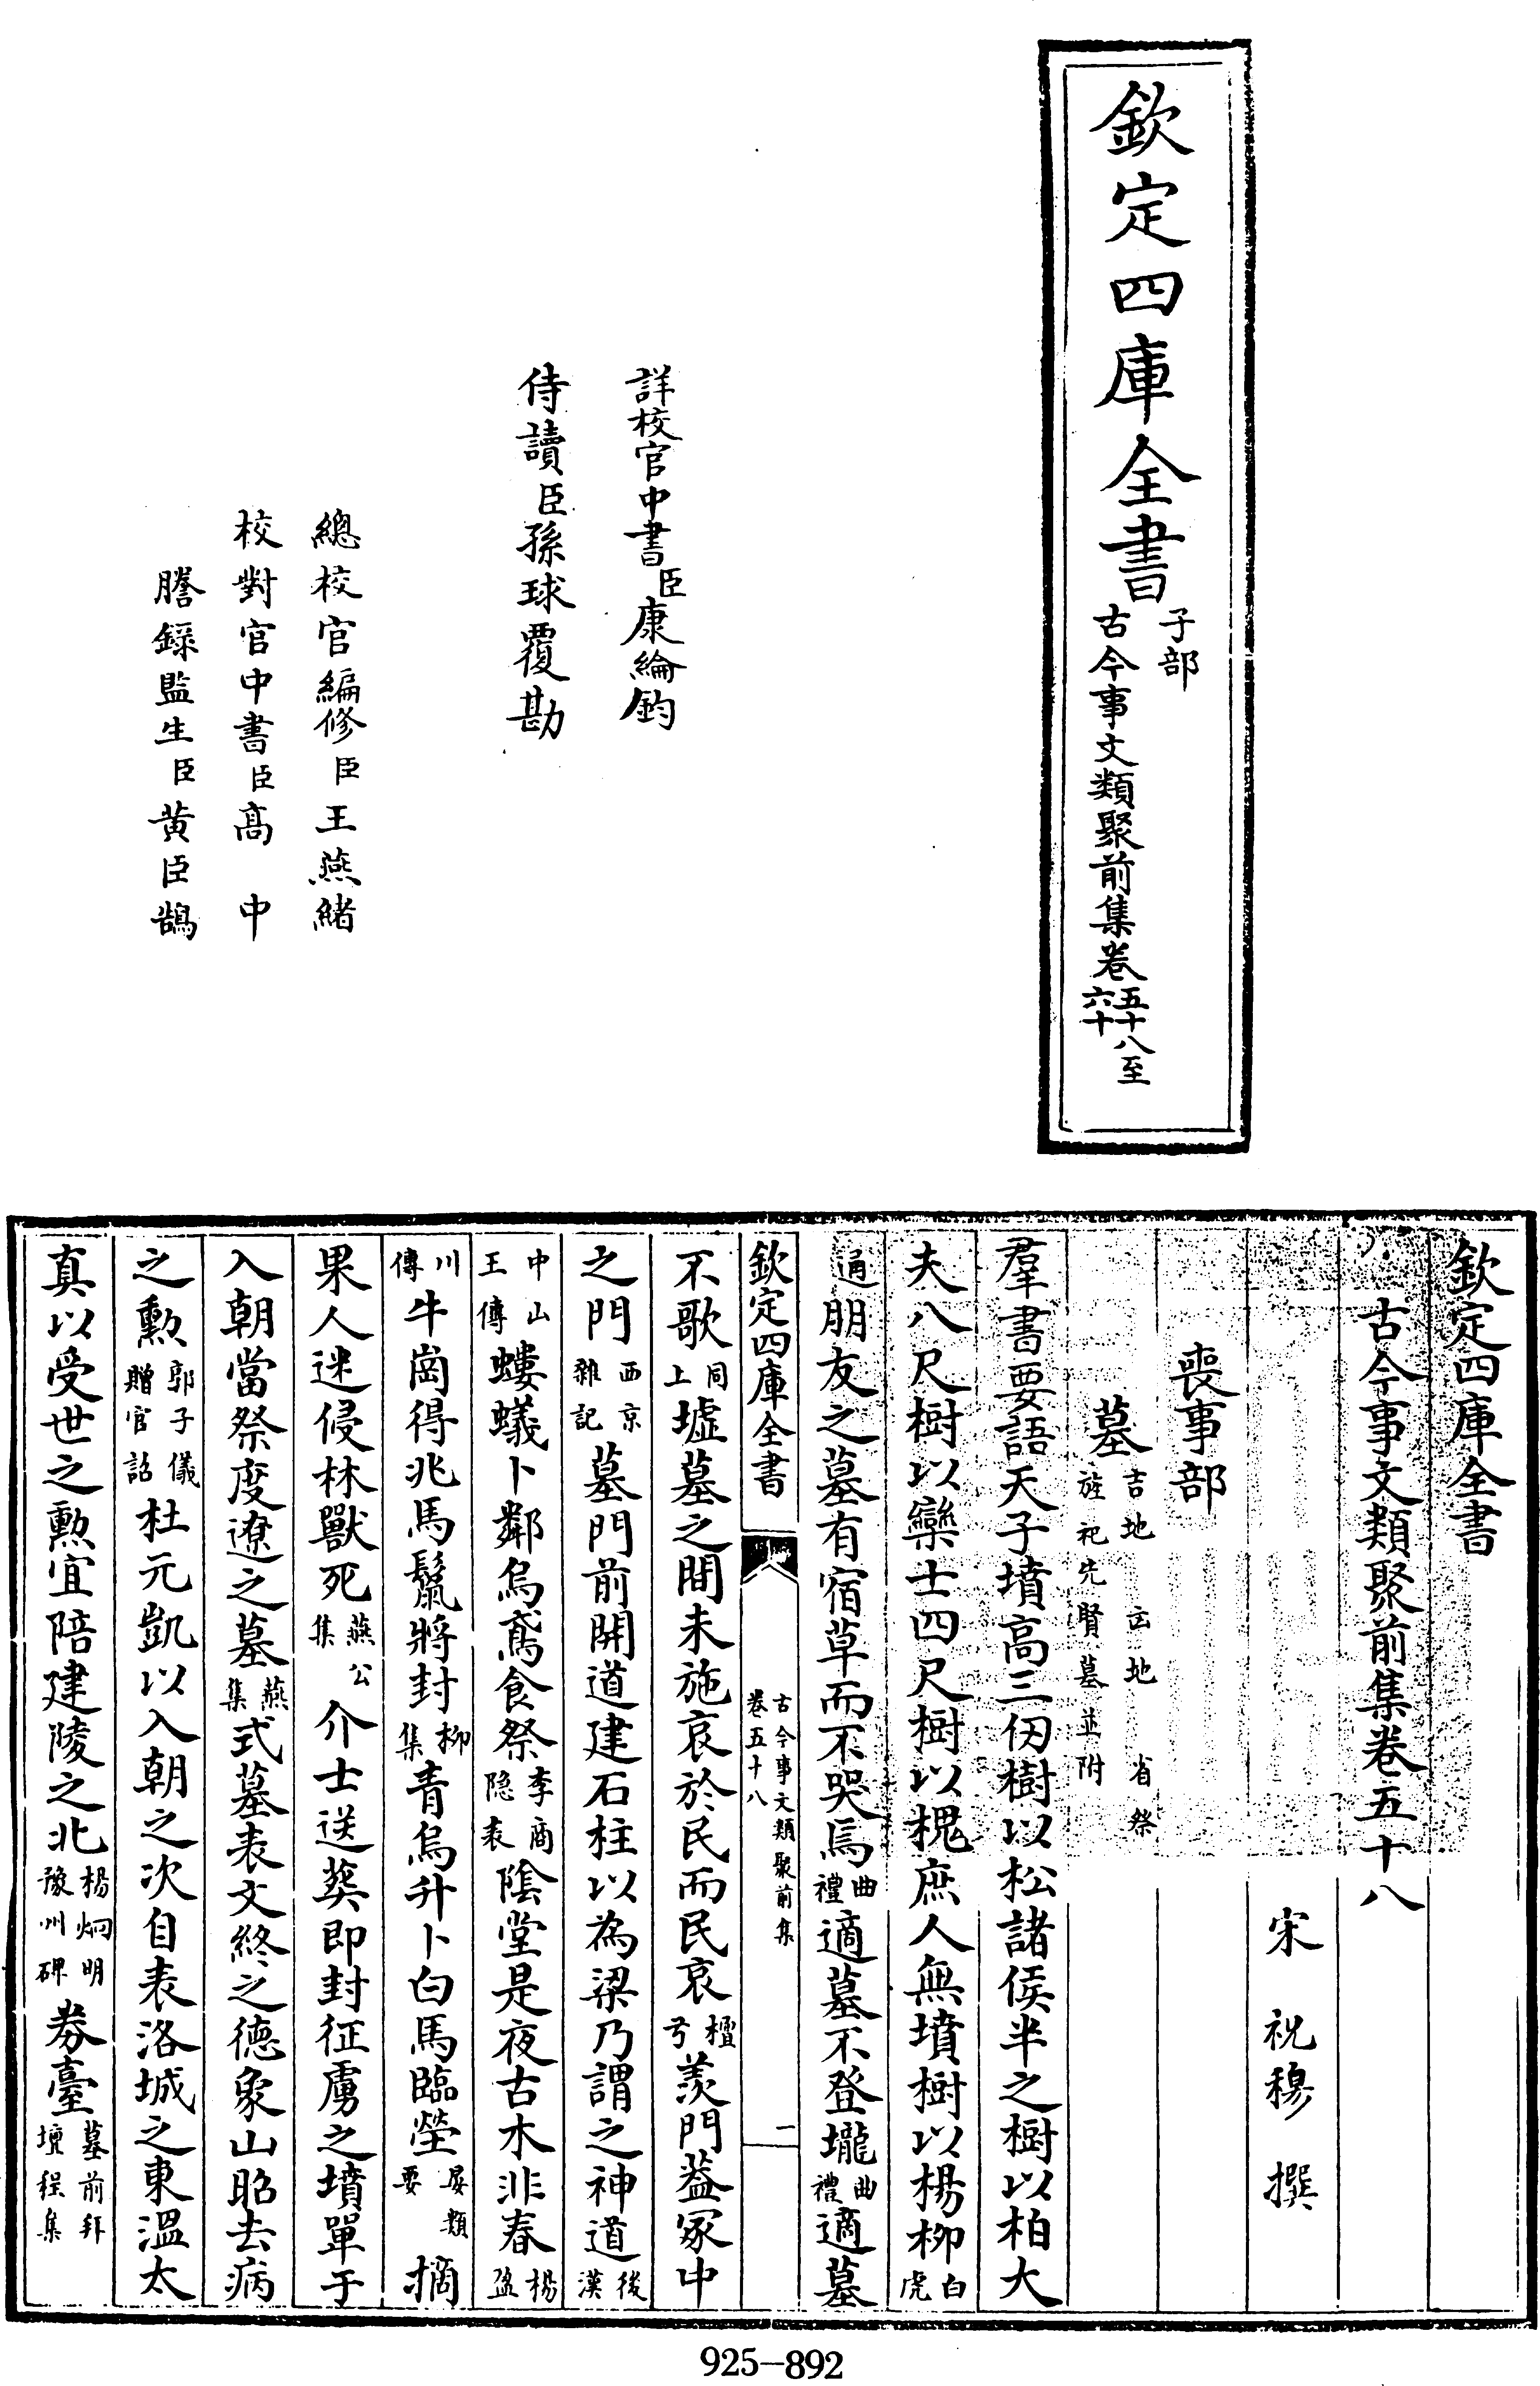 欽定四庫全書
子部
古今事文類聚前集卷五十八至六十
詳校官中書臣康綸鈞
侍讀臣孫球覆勘
總校官編修臣王燕緒
校對官中書臣高中
謄錄監生臣黃臣鵠
欽定四庫全書
古今事文類聚前集卷五十八
宋 祝穆 撰
喪事部
墓吉地 凶地 省祭旌祀先賢墓並附
羣書要語天子墳高三仞樹以松諸侯半之樹以柏大
夫八尺樹以欒士四尺樹以槐庶人無墳樹以楊柳白虎
通朋友之墓有宿草而不哭焉曲禮適墓不登壠曲禮適墓
欽定四庫全書
古今事文類聚前集
卷五十八
一
不歌同上墟墓之間未施哀於民而民哀檀弓羨門蓋冢中
之門西京雜記墓門前開道建石柱以為梁乃謂之神道後漢
中山王傳螻蟻卜鄰烏鳶食祭李商隱表陰堂是夜古木非春楊盈
川傳牛崗得兆馬鬛將封柳集青烏升卜白馬臨塋晏類要摘
果人迷侵林獸死燕公集介士送葬即封征虜之墳單于
入朝當祭度遼之墓燕集式墓表文終之德象山昭去病
之勲郭子儀贈官詔杜元凱以入朝之次自表洛城之東溫太
真以受世之勲宜陪建陵之北楊炯明豫州碑劵臺墓前拜壇程集
925-892